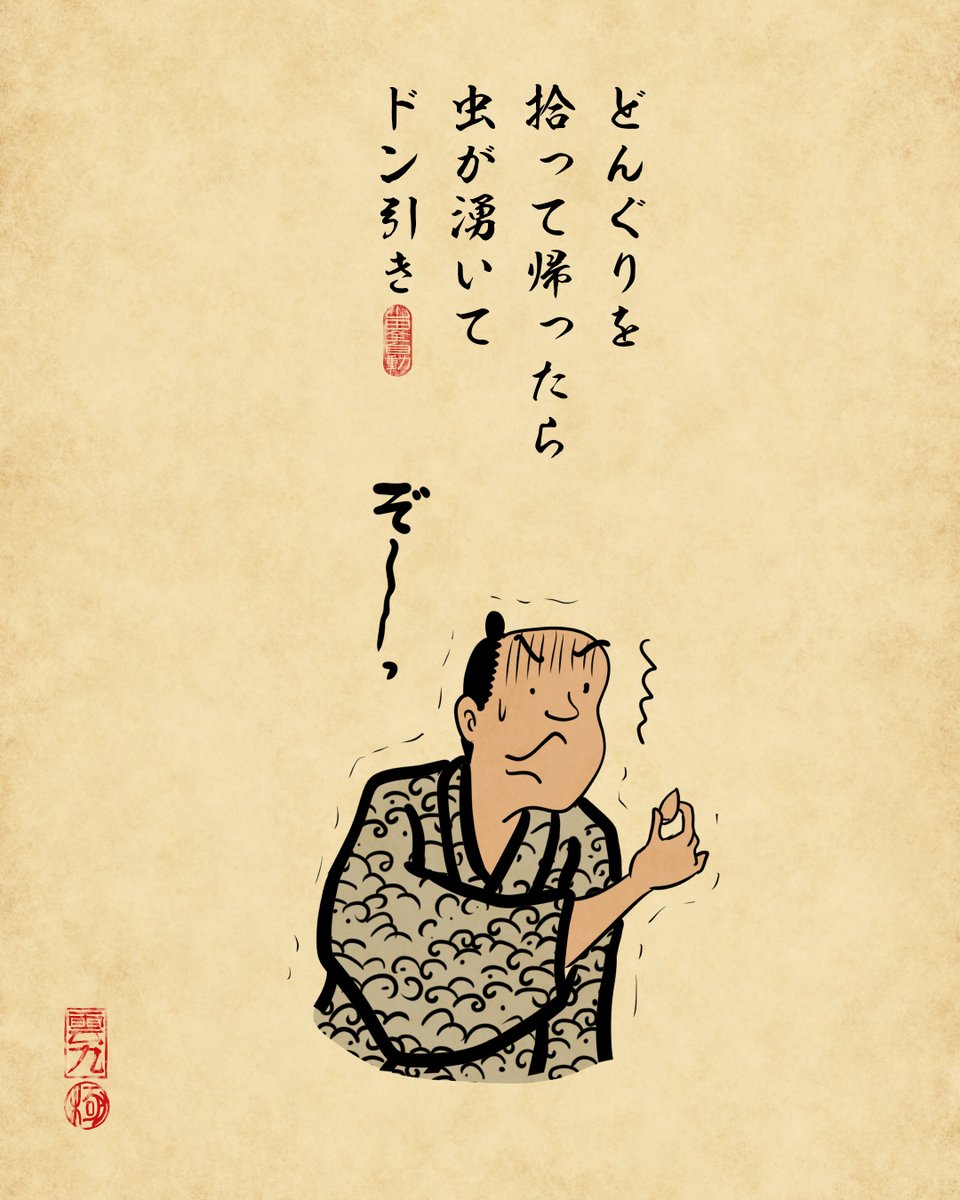 どんぐりを
拾って帰ったら
虫が湧いて
ドン引き
ぞ〜〜っ